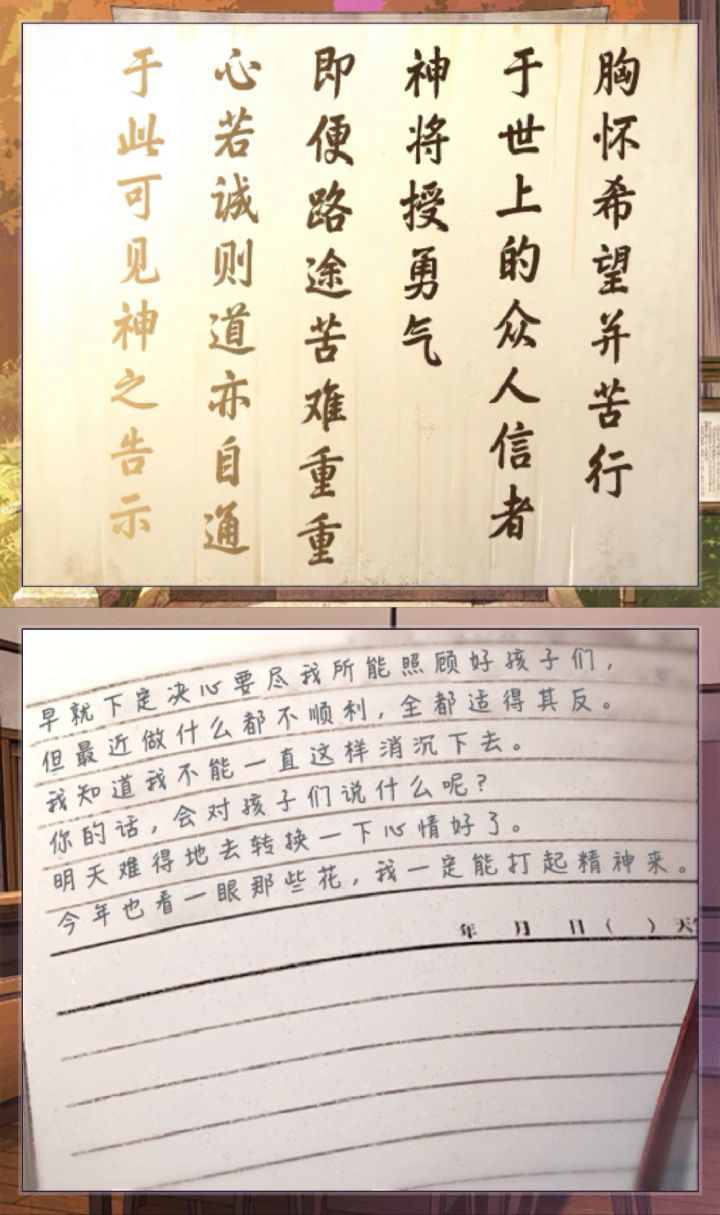 胸怀希望并苦行
于世上的众人信者
神将授勇气
即便路途苦难重重
心若诚则道亦自通
于此可见神之告示
早就下定决心要尽我所能照顾好孩子们，
但最近做什么都不顺利，全都适得其反。
我知道我不能一直这样消沉下去。
你的话，会对孩子们说什么呢？
明天难得地去转换一下心情好了。
今年也看一眼那些花，我一定能打起精神来。
年 月 日（ ）天